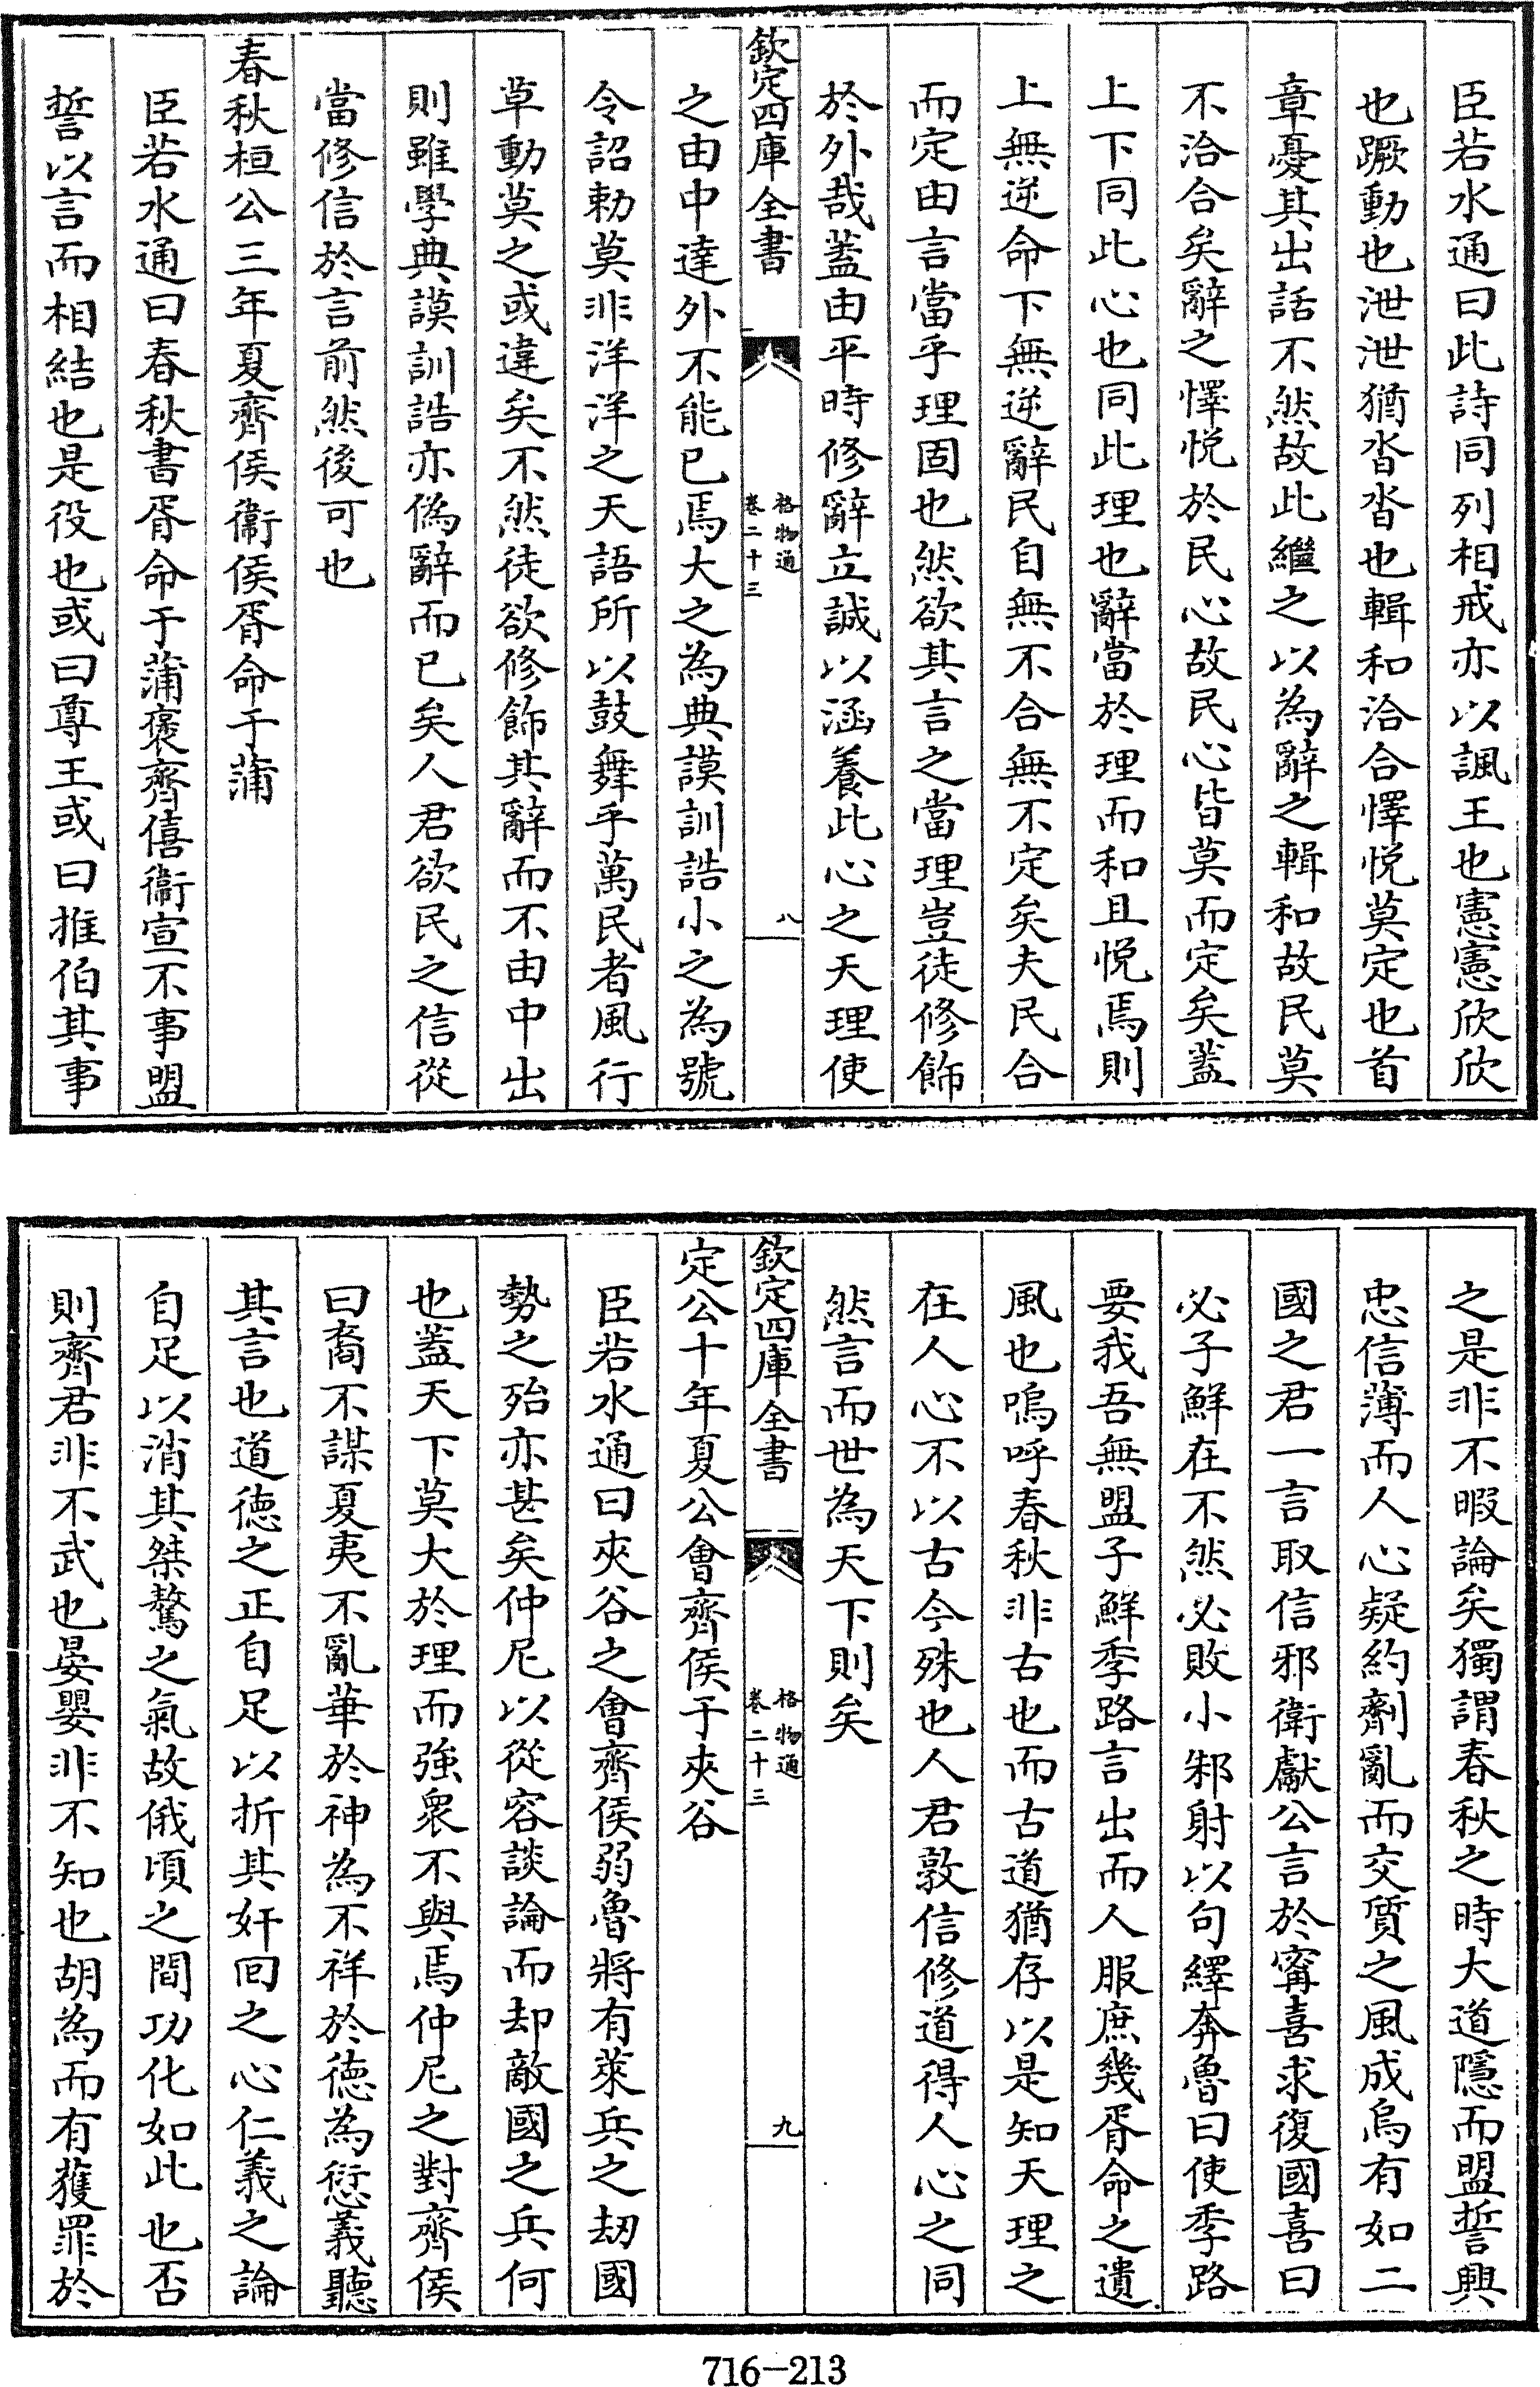 臣若水通曰此詩同列相戒亦以諷王也憲憲欣欣
也蹶動也泄泄猶沓沓也輯和洽合懌悅莫定也首
章憂其出話不然故此繼之以為辭之輯和故民莫
不洽合矣辭之懌悅於民心故民心皆莫而定矣蓋
上下同此心也同此理也辭當於理而和且悅焉則
上無逆命下無逆辭民自無不合無不定矣夫民合
而定由言當乎理固也然欲其言之當理豈徒修飾
於外哉蓋由平時修辭立誠以涵養此心之天理使
欽定四庫全書
格物通
卷二十三
八
之由中達外不能已焉大之為典謨訓誥小之為號
令詔勅莫非洋洋之天語所以鼓舞乎萬民者風行
草動莫之或違矣不然徒欲修飾其辭而不由中出
則雖學典謨訓誥亦偽辭而已矣人君欲民之信從
當修信於言前然後可也
春秋桓公三年夏齊侯衞侯胥命于蒲
臣若水通曰春秋書胥命于蒲褒齊僖衞宣不事盟
誓以言而相結也是役也或曰尊王或曰推伯其事
之是非不暇論矣獨謂春秋之時大道隱而盟誓興
忠信薄而人心疑約劑亂而交質之風成烏有如二
國之君一言取信邪衛獻公言於甯喜求復國喜曰
必子鮮在不然必敗小邾射以句繹奔魯曰使季路
要我吾無盟子鮮季路言出而人服庶幾胥命之遺
風也嗚呼春秋非古也而古道猶存以是知天理之
在人心不以古今殊也人君敦信修道得人心之同
然言而世為天下則矣
欽定四庫全書
格物通
卷二十三
九
定公十年夏公會齊侯于夾谷
臣若水通曰夾谷之會齊侯弱魯將有萊兵之刼國
勢之殆亦甚矣仲尼以從容談論而却敵國之兵何
也蓋天下莫大於理而強衆不與焉仲尼之對齊侯
曰裔不謀夏夷不亂華於神為不祥於德為愆義聽
其言也道德之正自足以折其奸回之心仁義之論
自足以消其桀驁之氣故俄頃之間功化如此也否
則齊君非不武也晏嬰非不知也胡為而有獲罪於
716-213